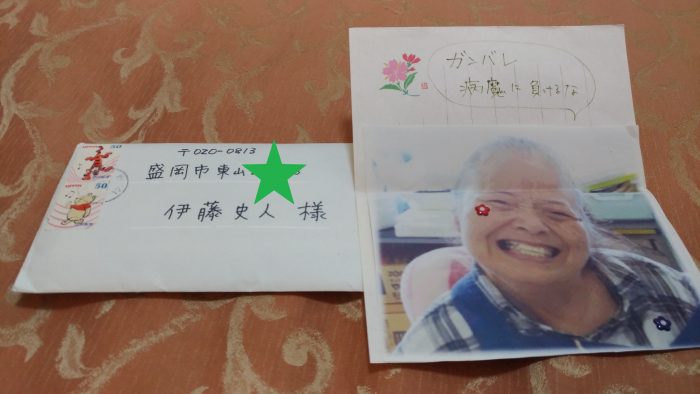 50
NIPPON
50
〒020-0813
盛岡市東山
伊藤史人 様
ガンバレ
病魔に負けるな